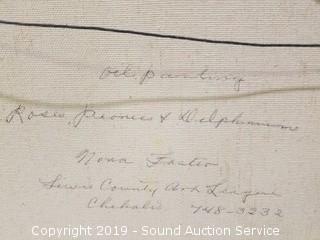 oil painting
Roses, Peonies & Delphinium
Nona
Lewis County Art League
Chehalis 748-3232
Copyright 2019 - Sound Auction Service